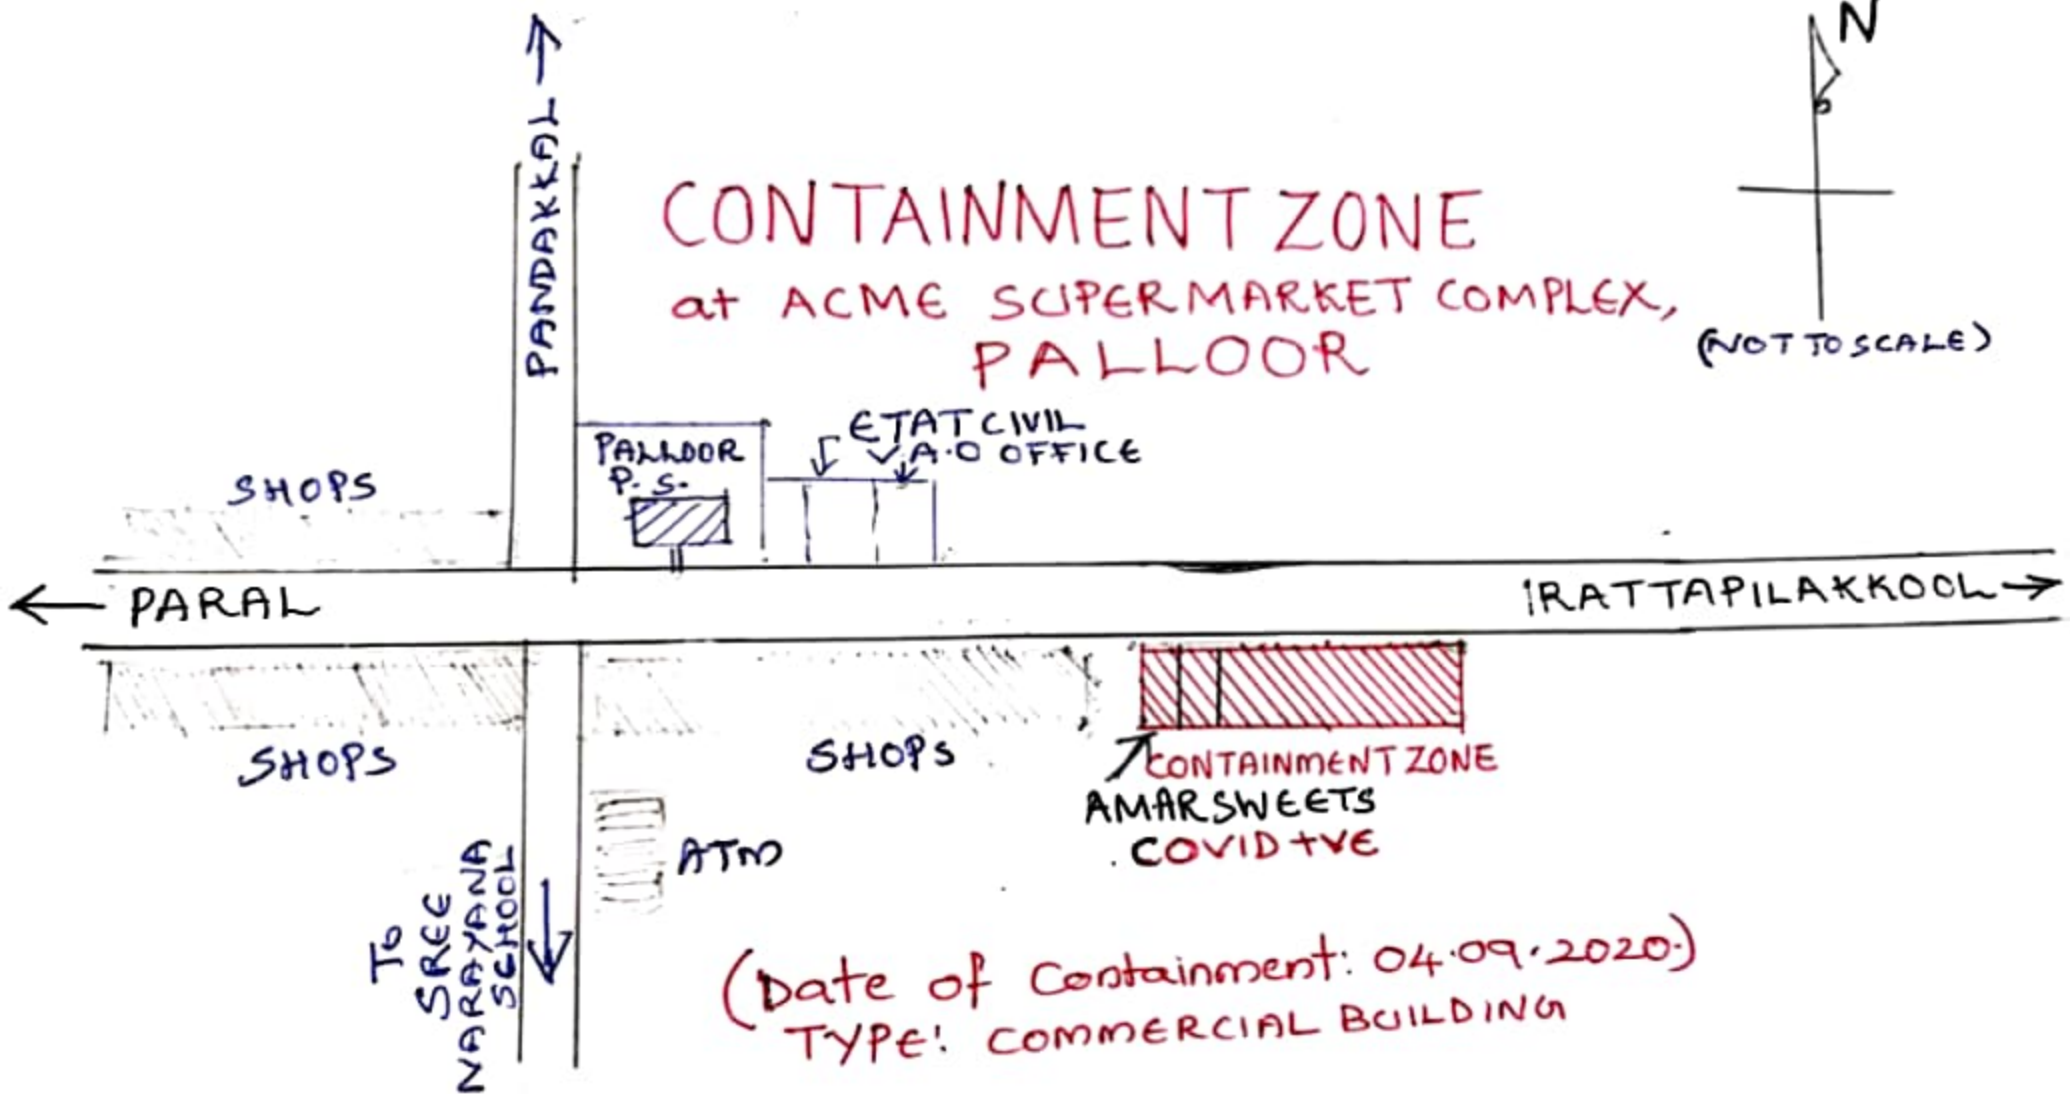 PANDAKKAL
N
CONTAINMENT ZONE
at ACME SUPERMARKET COMPLEX,
PALLOOR
(NOT TO SCALE)
ETAT CIVIL
V.A.O OFFICE
PALLOOR
P.S.
SHOPS
PARAL
IRATTAPILAKKOOL
SHOPS
SHOPS
CONTAINMENT ZONE
AMAR SWEETS
COVID +VE
ATM
To
SREE
NARAYANA
SCHOOL
(Date of Containment: 04.09.2020.)
TYPE: COMMERCIAL BUILDING